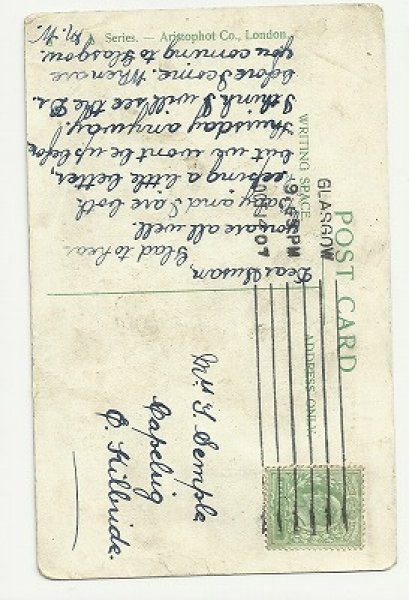 POST CARD
WRITING SPACE
ADDRESS ONLY
GLASGOW
9.45PM
OC 14 07
Dear Susan,
Glad to hear
you are all well.
Baby and I are both
keeping a little better,
but we wont be up before
Thursday anyway!
I think I will see the Dr.
before I come. When are
you coming to Glasgow.
M. W.
Series. — Aristophot Co., London.
Mrs J Semple
Capelrig
E. Kilbride.